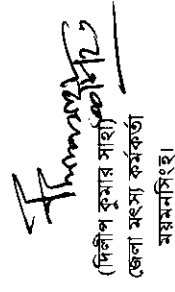 (দিলীপ কুমার সাহা)
জেলা মৎস্য কর্মকর্তা
ময়মনসিংহ।